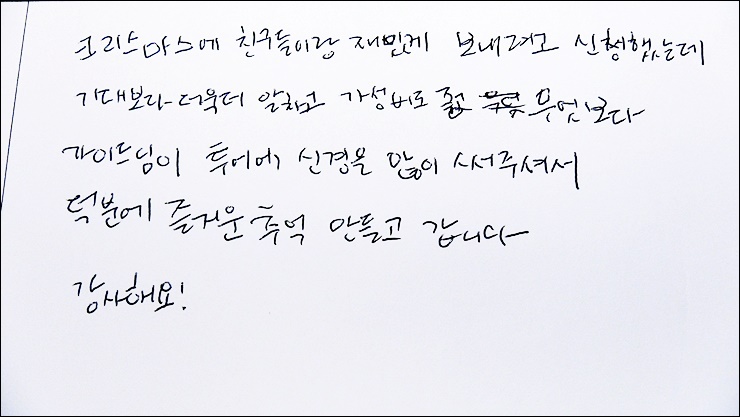 크리스마스에 친구들이랑 재밌게 보내려고 신청했는데
기대보다 더욱더 알차고 가성비도 무엇보다
가이드님이 투어에 신경을 많이 써주셔서
덕분에 즐거운 추억 만들고 갑니다
감사해요!